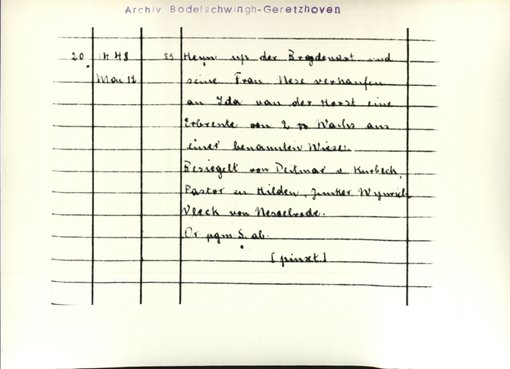 Archiv Bodelschwingh-Geretzhoven
20. 1448 85 Heyn up der Brugdenart und
Mai 12 seine Frau Nese verkaufen
an Ida van der Horst eine
Erbrente von 2 Wachs aus
einer benannten Wiese.
Besiegelt von Deitmar v. Kurbeck,
Pastor in Hilden, Junker
von Nesselrode.
Or. pgm. S. ab.